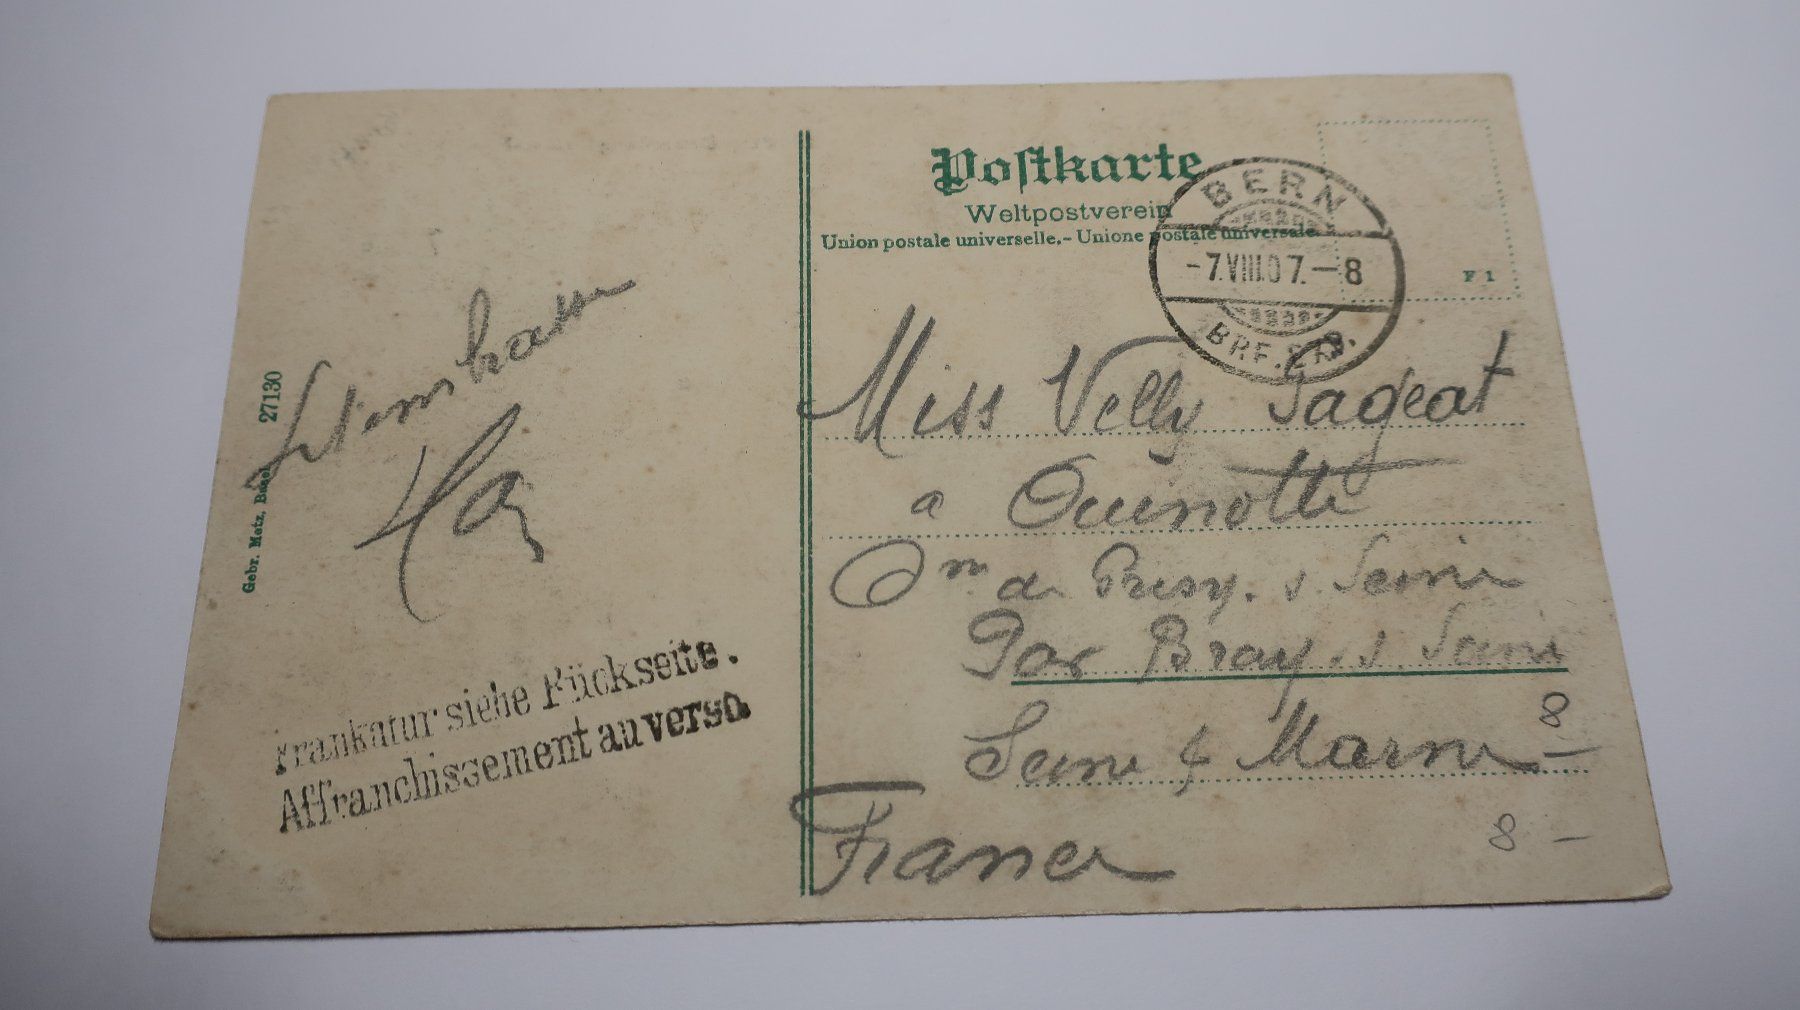 Postkarte
Weltpostverein
Union postale universelle.- Unione postale universale.
BERN
-7.VIII.07.-8
BRF.
F 1
27130
Gebr. Metz, Basel
Miss Velly Sageat
a
de s. Seine
Par Bray. s. Seine
Seine & Marne
France
8 -
8 -
Frankatur siehe Rückseite.
Affranchissement au verso.